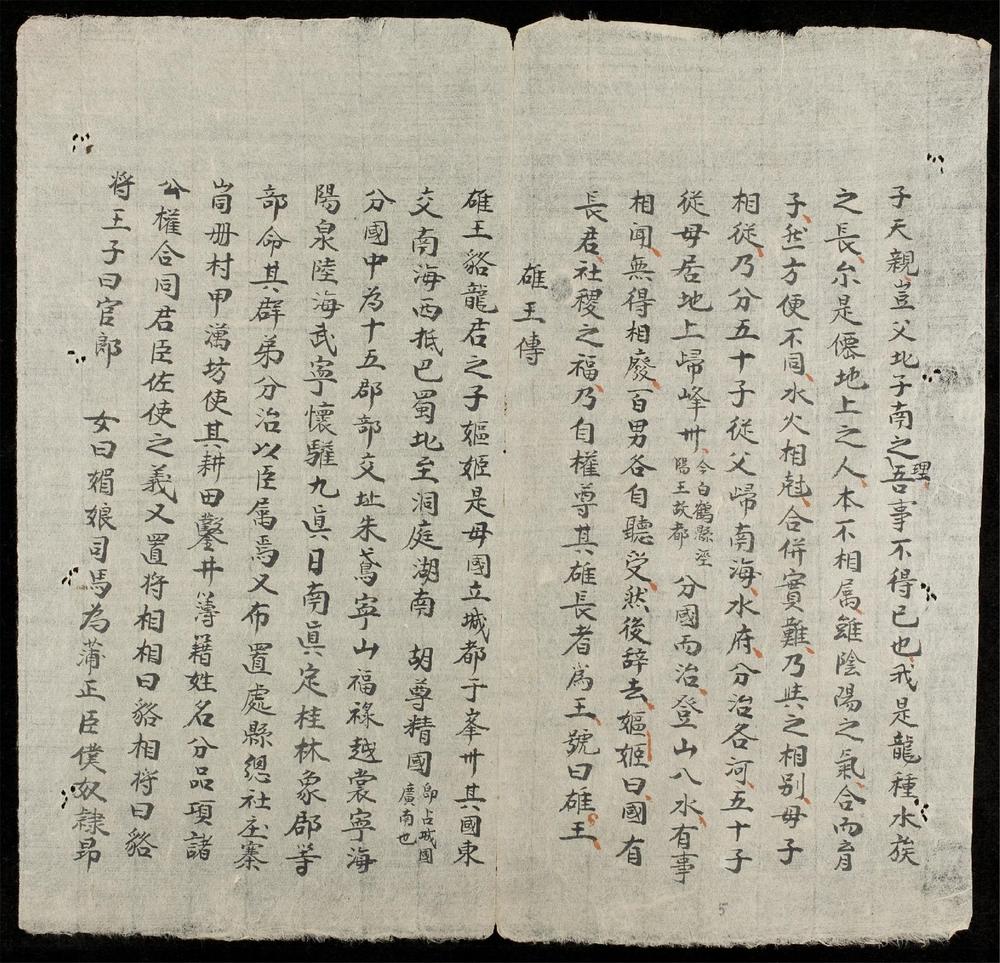 子天親豈父北子南之理吾事不得已也我是龍種水族
之長尓是僊地上之人本不相属雖陰陽之氣合而育
子然方便不同水火相尅合併實難乃與之相别母子
相從乃分五十子從父歸南海水府分治各河五十子
從母居地上歸峰州今白鶴縣涇陽王故都分國而治登山八水有事
相聞無得相廢百男各自聽受然後辞去嫗姬曰國有
長君社稷之福乃自權尊其雄長者爲王號曰雄王
雄王傳
雄王貉龍君之子嫗姬是母國立城都于峯州其國東
交南海西抵巴蜀北至洞庭湖南胡尊精國即占城國廣南也
分國中為十五郡部交址朱鳶寧山福祿越裳寧海
陽泉陸海武寧懷驩九眞日南眞定桂林象郡等
部命其群弟分治以臣属焉又布置處縣總社庄寨
崗册村甲萬坊使其耕田鑿井簿籍姓名分品項諸
公權合同君臣佐使之義又置将相相曰貉相将曰貉
将王子曰官郎 女曰媚娘司馬為蒲正臣僕奴隷昂
5